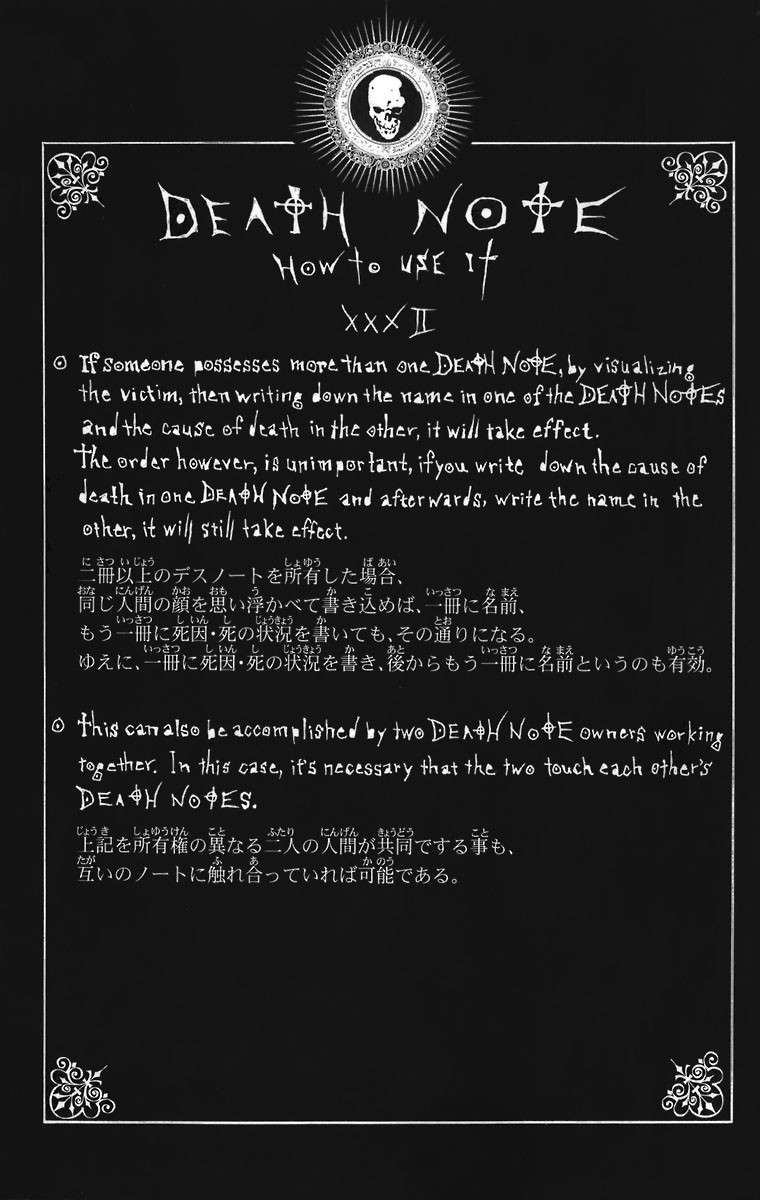 DEATH NOTE
HOW to USE It
XXXII
If someone possesses more than one DEATH NOTE, by visualizing
the victim, then writing down the name in one of the DEATH NOTES
and the cause of death in the other, it will take effect.
The order however, is unimportant, if you write down the cause of
death in one DEATH NOTE and afterwards, write the name in the
other, it will still take effect.
二冊以上のデスノートを所有した場合、
同じ人間の顔を思い浮かべて書き込めば、一冊に名前、
もう一冊に死因・死の状況を書いても、その通りになる。
ゆえに、一冊に死因・死の状況を書き、後からもう一冊に名前というのも有効。
This can also be accomplished by two DEATH NOTE owners working
together. In this case, it's necessary that the two touch each other's
DEATH NOTES.
上記を所有権の異なる二人の人間が共同でする事も、
互いのノートに触れ合っていれば可能である。